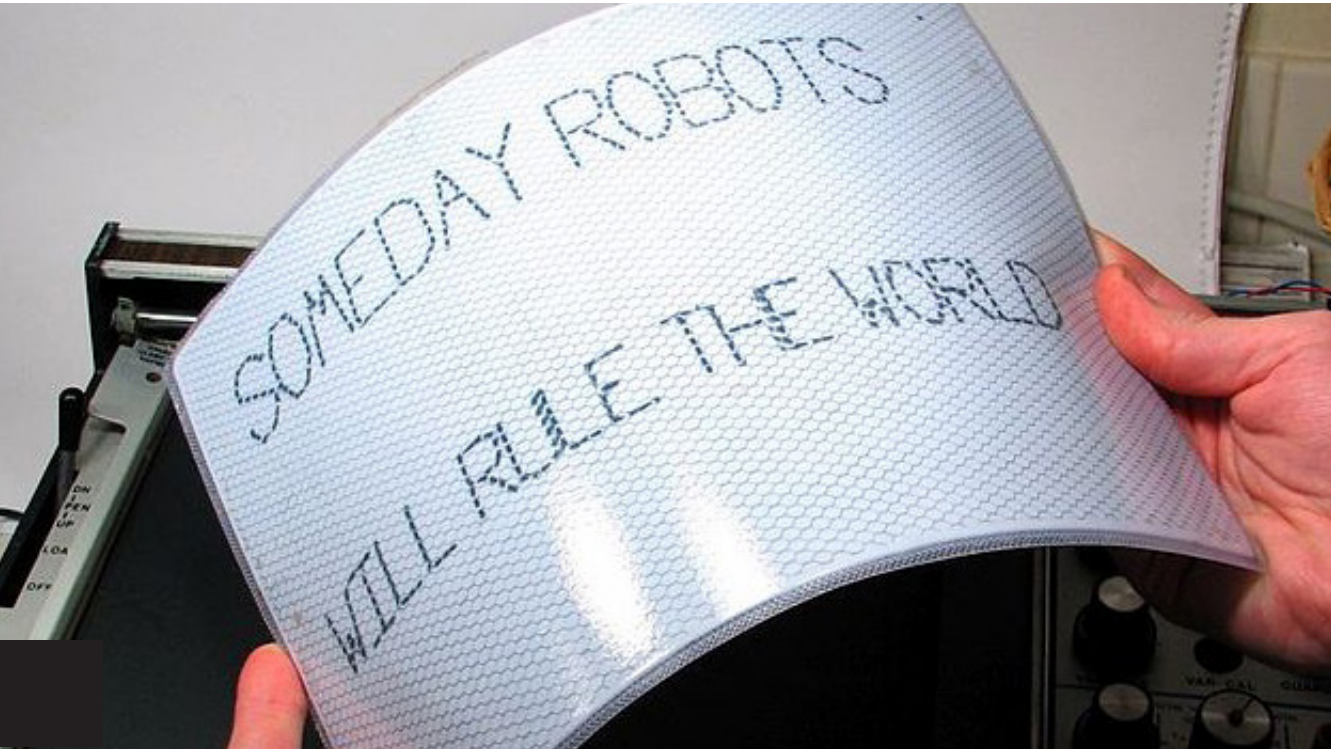 SOMEDAY ROBOTS
WILL RULE THE WORLD
ON
PEN
UP
LOA
OFF
VAR-CAL